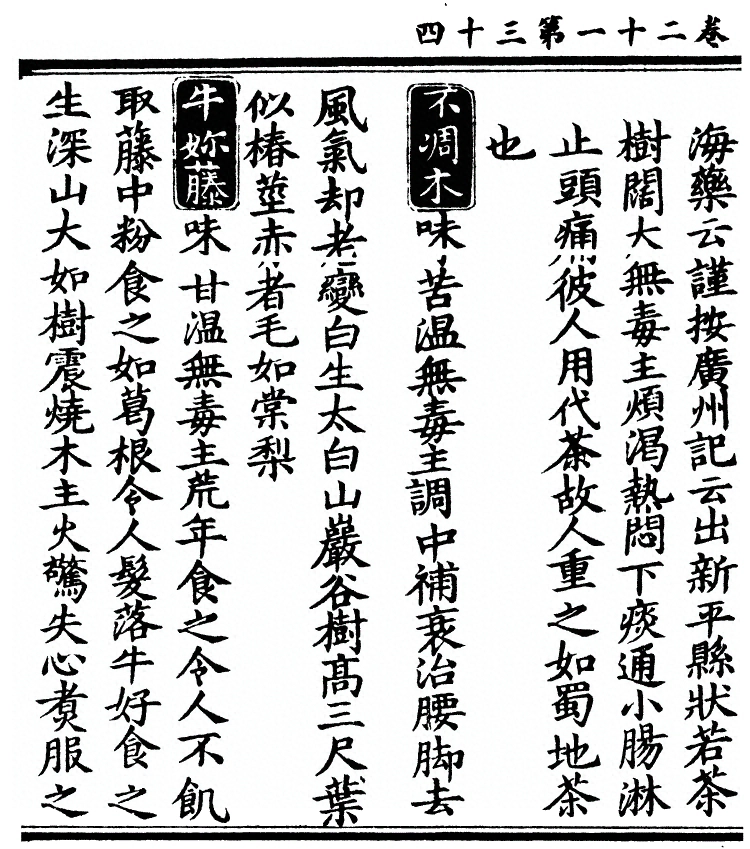 卷二十一第三十四
海藥云謹按廣州記云出新平縣狀若茶
樹闊大無毒主煩渴熱悶下痰通小腸淋
止頭痛彼人用代茶故人重之如蜀地茶
也
不凋木味苦温無毒主調中補衰治腰脚去
風氣却老變白生太白山巖谷樹髙三尺葉
似椿莖赤者毛如棠梨
牛妳藤味甘温無毒主荒年食之令人不飢
取藤中粉食之如葛根令人髮落牛好食之
生深山大如樹震燒木主火驚失心煑服之